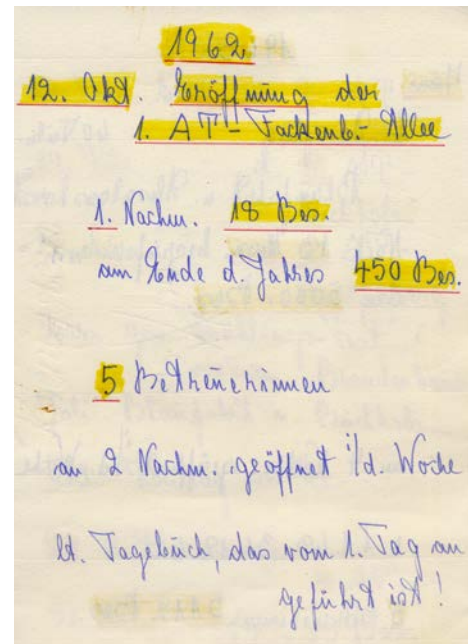 1962
12. Okt. Eröffnung der
1. AT-Fackenb.-Allee
1. Nachm. 18 Bes.
am Ende d. Jahres 450 Bes.
5 Betreuerinnen
an 2 Nachm. geöffnet i/d. Woche
lt. Tagebuch, das vom 1. Tag an
geführt ist!